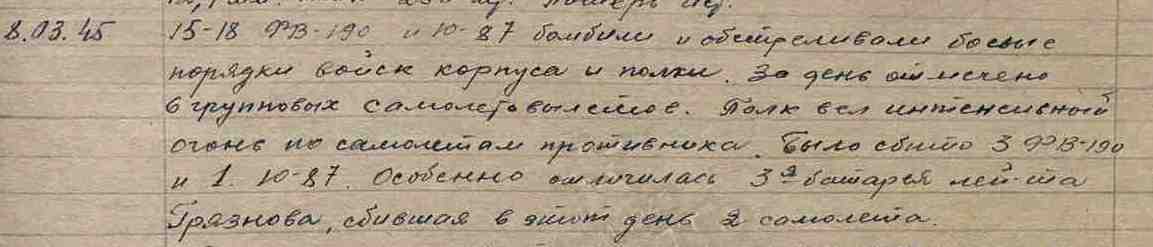 8.03.45 15-18 ФВ-190 и Ю-87 бомбили и обстреливали боевые
порядки войск корпуса и полки. За день отмечено
6 групповых самолетовылетов. Полк вел интенсивный
огонь по самолетам противника. Было сбито 3 ФВ-190
и 1 Ю-87. Особенно отличилась 3я батарея лей-та
Грязнова, сбившая в этот день 2 самолета.